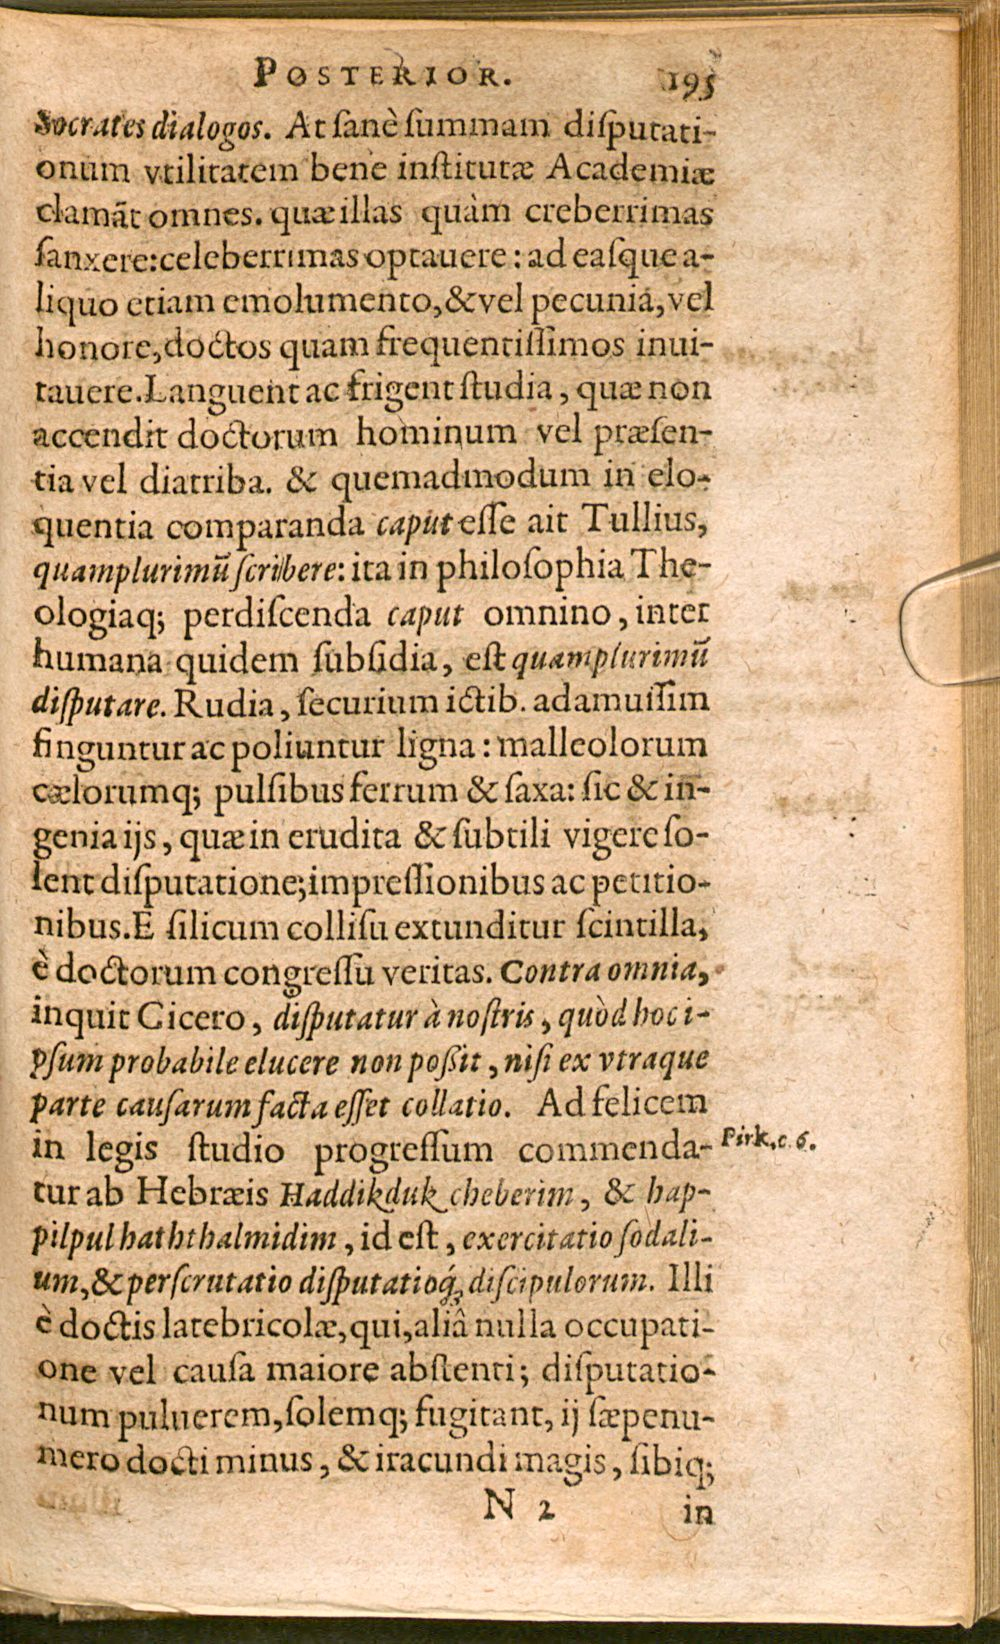 POSTERIOR. 195
Socrates dialogos. At sanè summam disputati-
onum vtilitatem bene institutæ Academiæ
clamãt omnes. quæ illas quàm creberrimas
sanxere: celeberrimas optauere: ad easque a-
liquo etiam emolumento, & vel pecuniâ, vel
honore, doctos quam frequentissimos inui-
tauere. Languent ac frigent studia, quæ non
accendit doctorum hominum vel præsen-
tia vel diatriba. & quemadmodum in elo-
quentia comparanda caput esse ait Tullius,
quamplurimũ scribere: ita in philosophia The-
ologiaq; perdiscenda caput omnino, inter
humana quidem subsidia, est quamplurimũ
disputare. Rudia, securium ictib. adamussim
finguntur ac poliuntur ligna: malleolorum
cælorumq; pulsibus ferrum & saxa: sic & in-
genia ijs, quæ in erudita & subtili vigere so-
lent disputatione; impressionibus ac petitio-
nibus. E silicum collisu extunditur scintilla,
è doctorum congressu veritas. Contra omnia,
inquit Cicero, disputatur à nostris, quòd hoc i-
psum probabile elucere non poßit, nisi ex vtraque
parte causarum facta esset collatio. Ad felicem
in legis studio progressum commenda-
Pirk. c. 6.
tur ab Hebræis Haddikduk cheberim, & hap-
pilpul haththalmidim, id est, exercitatio sodali-
um, & perscrutatio disputatioq́; discipulorum. Illi
è doctis latebricolæ, qui, aliâ nulla occupati-
one vel causa maiore abstenti; disputatio-
num puluerem, solemq; fugitant, ij sæpenu-
mero docti minus, & iracundi magis, sibiq;
N 2 in